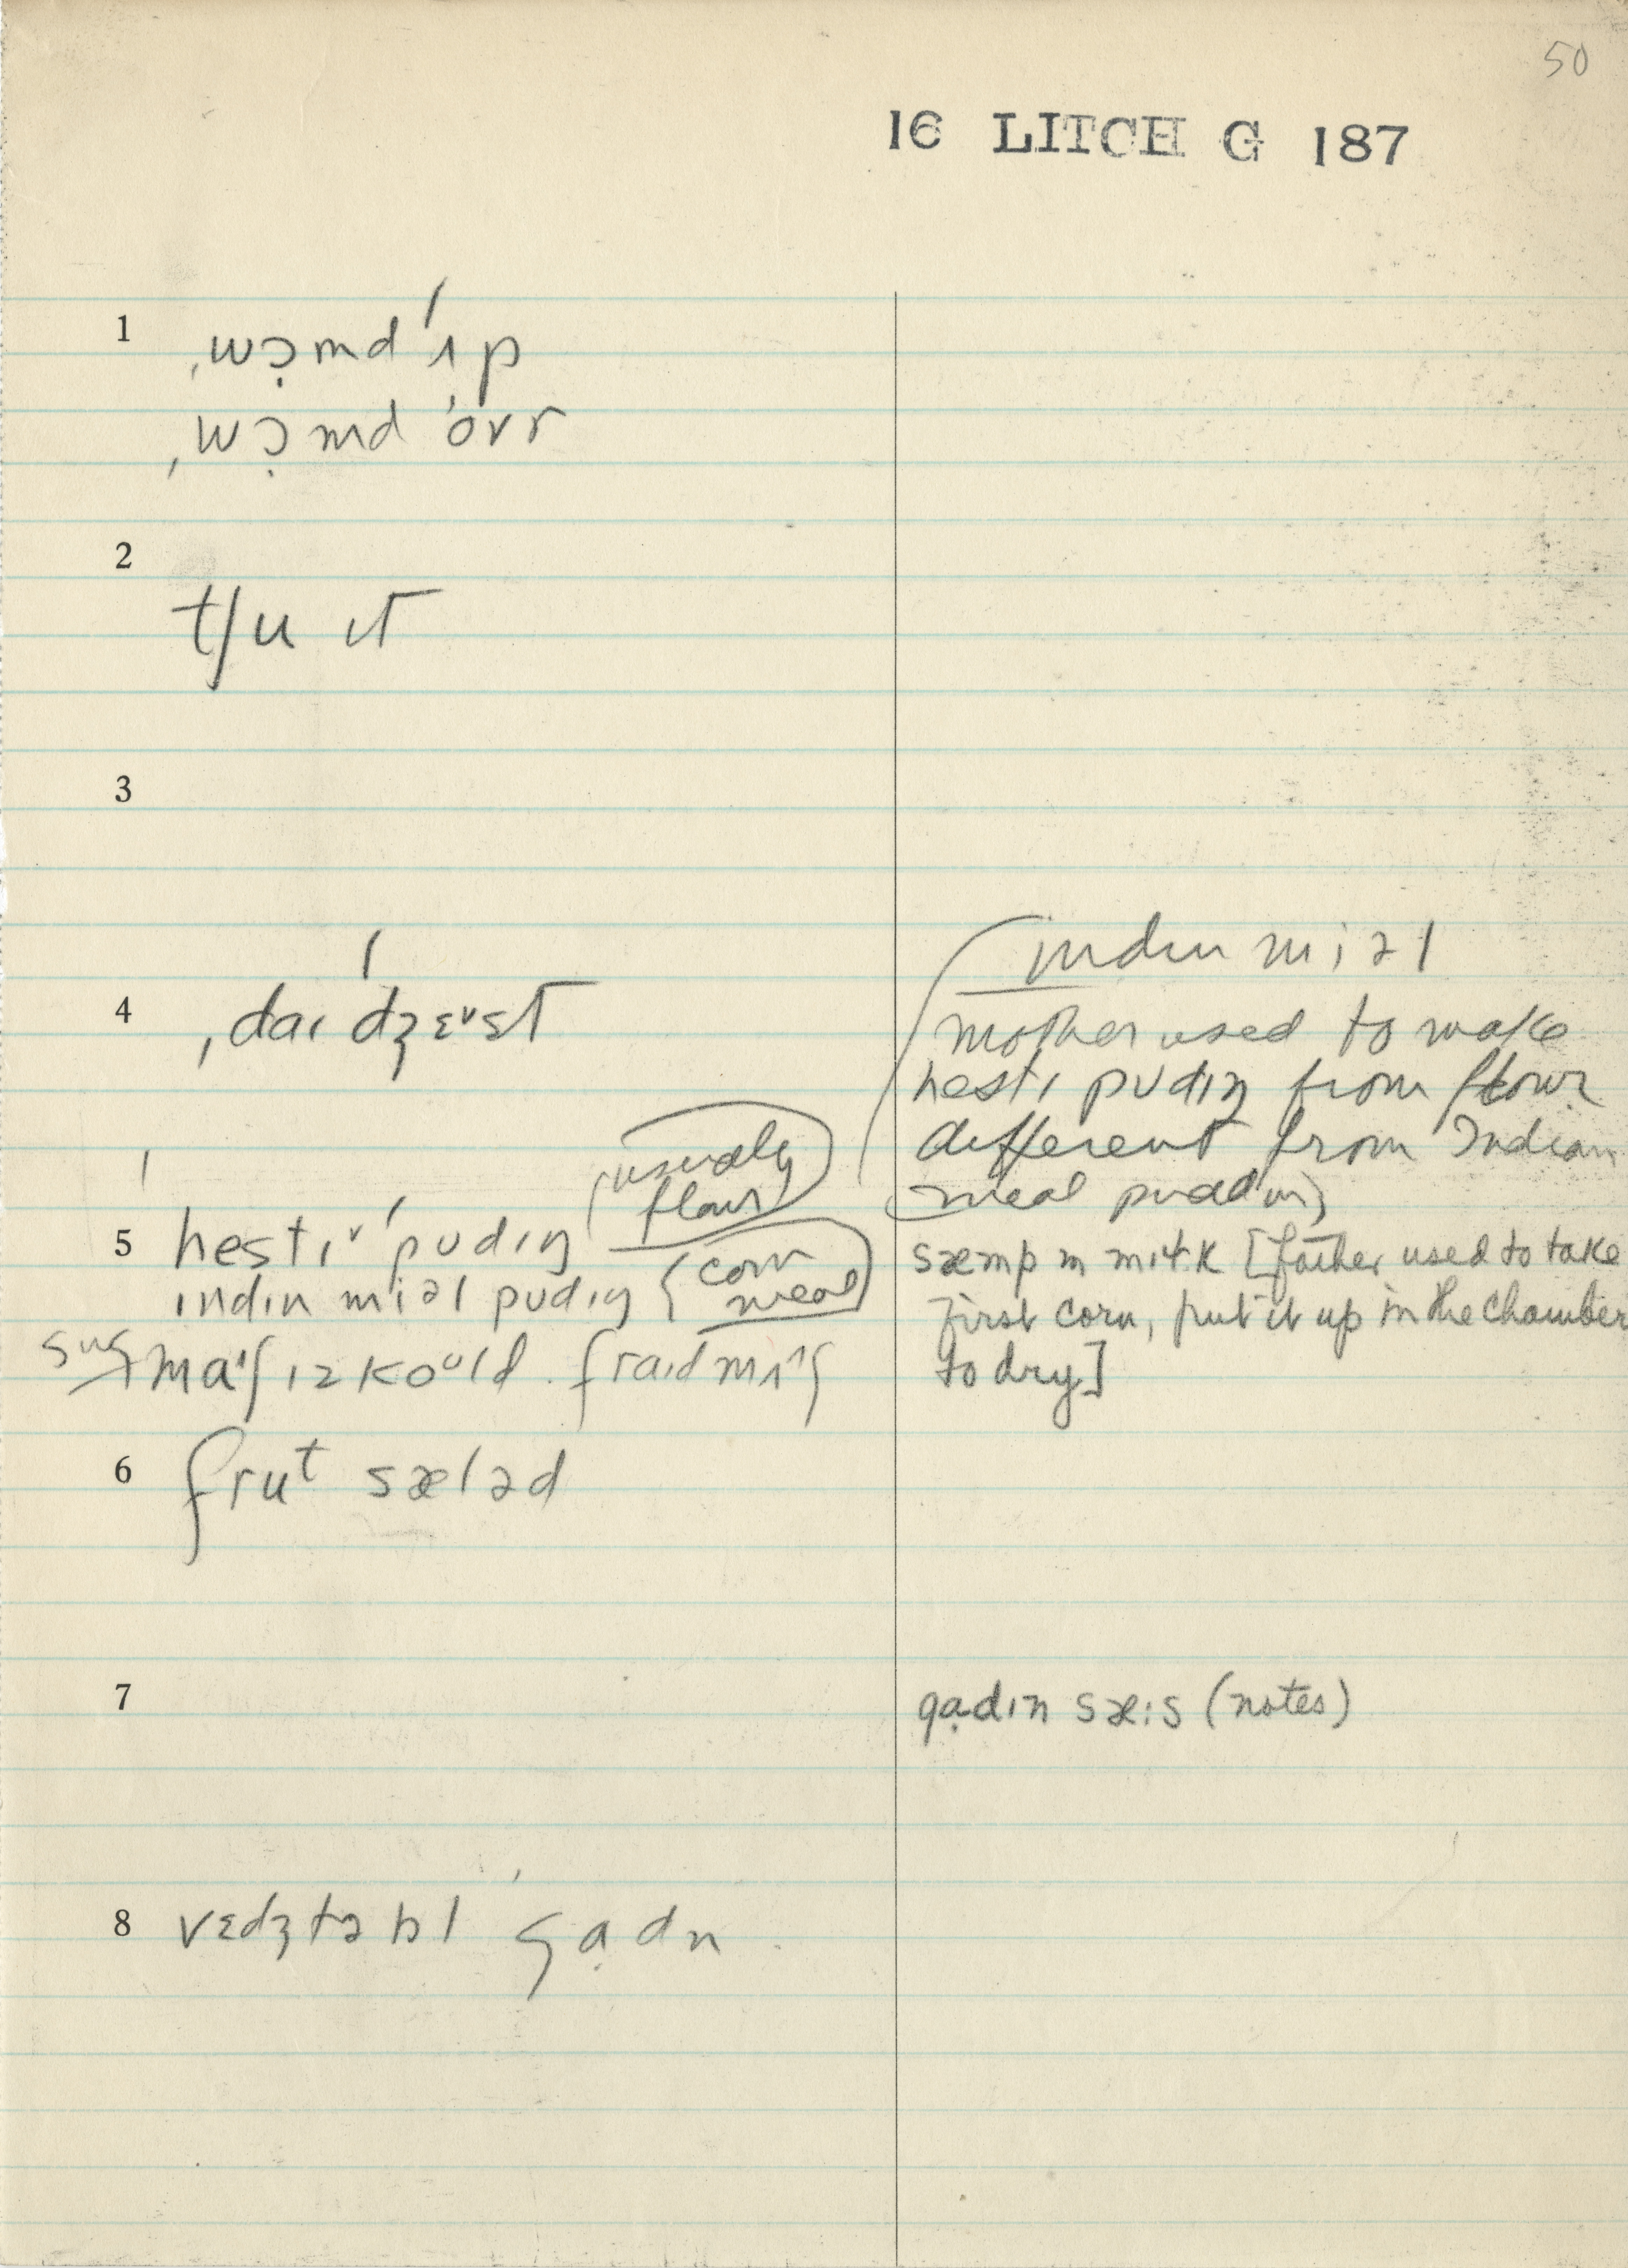 50
16 LITCH G 187
1
ˌwɔ̣md ˈɪp
ˌwɔ̣md ˈovr
2
tʃu ɪt
3
4
ˌdaɪ ˈdʒɛᵛst
5
hestɪᵛ ˈpudɪŋ (usually
flour)
ɪndɪn miəl pudɪŋ (corn
meal)
sug maʃ ɪz koᵘld. fraɪd mʌʃ
6
frut sæləd
7
8
vɛdʒtəbl ˈgạdn
(ɪndɪn miəl
mother used to make
hestɪ pudɪŋ from flour
different from Indian
meal puddin)
sæmp m mɪɫk [father used to take
first corn, put it up in the chamber
to dry]
gạdɪn sæːs (notes)